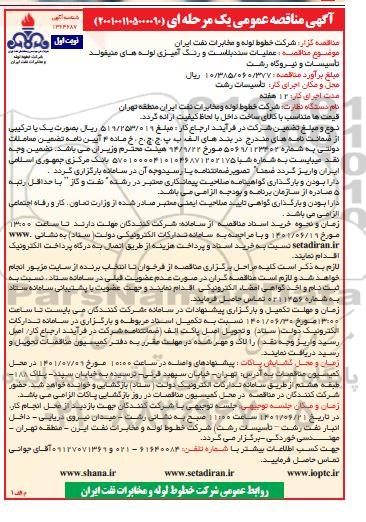 آگهی مناقصه عمومی یک مرحله ای (۲۰۰۱۰۰۱۱۰۵۰۰۰۰۹۰)
شناسه آگهی
۱۳۶۴۶۸۷
نوبت اول
مناقصه گزار: شرکت خطوط لوله و مخابرات نفت ایران
موضوع مناقصه: عملیات سندبلاست و رنگ آمیزی لوله های منیفولد تأسیسات و نیروگاه رشت
مبلغ برآورد مناقصه: ۱۰/۳۸۵/۰۶۰/۳۷۷ ریال
محل و مکان اجرای کار: تأسیسات رشت
مدت اجرای کار: ۱۲ هفته
نام دستگاه نظارت: شرکت خطوط لوله ومخابرات نفت ایران منطقه تهران
قیمت ها متناسب با کالای ساخت داخل با لحاظ کیفیت ارائه گردد.
نوع و مبلغ تضمین شرکت در فرآیند ارجاع کار: مبلغ ۵۱۹/۲۵۳/۰۱۹ ریال بصورت یک یا ترکیبی
از ضمانت نامه های مندرج در بند های الف. ب. پ. ج. چ. ح. خ ماده ۴ آیین نامه تضمین معاملات
دولتی به شماره ۱۲۳۴۰۲/ت۵۰۶۵۹ مورخ ۹۴/۹/۲۲ هیئت محترم وزیران می باشد. تضمین وجه
نقد میبایست به شماره شبا ۵۷۰۱۰۰۰۰۴۱۰۱۰۴۶۸۷۱۲۰۲۱۷۵ بانک مرکزی جمهوری اسلامی
ایران واریز گردد ضمنا" تصویرضمانتنامه یا رسیدوجه آن در سامانه بارگذاری گردد.
دارا بودن و بارگذاری گواهینامه صلاحیت پیمانکاری معتبر در رشته" نفت و گاز" با حداقل رتبه
۵ صادره از سازمان برنامه و بودجه الزامی می باشد.
دارا بودن و بارگذاری گواهی تایید صلاحیت ایمنی معتبر صادر شده از وزارت تعاون، کار و رفاه اجتماعی
الزامی می باشد.
زمان و نحوه خرید اسناد مناقصه از سامانه: شرکت کنندگان مهلت دارند تا ساعت ۱۳:۰۰
مورخ ۱۴۰۱/۰۶/۱۹ و با مراجعه به سامانه تدارکات الکترونیکی دولت (ستاد) به نشانی www.
setadiran.ir نسبت به خرید اسناد و پرداخت هزینه از طریق اتصال به درگاه پرداخت الکترونیک
اقدام نمایند.
لازم به ذکر است کلیه مراحل برگزاری مناقصه از فرخوان تا انتخاب برنده از سایت مزبور انجام
خواهد شد و لازم است مناقصه گران در صورت عدم عضویت قبلی در سامانه ستاد، نسبت به
ثبت نام و اخذ گواهی امضاء الکترونیکی اقدام نمایند و جهت عضویت با پشتیبانی سامانه ستاد
به شماره ۰۲۱۱۴۵۶ تماس حاصل فرمایند.
زمان و مهلت تکمیل و بارگزاری پیشنهادات در سامانه: شرکت کنندگان می بایست تا ساعت
۱۳:۰۰ مورخ ۱۴۰۱/۰۶/۳۰ نسبت به تکمیل اسناد مربوطه و بارگزاری در سامانه تدارکات
الکترونیک دولت( ستاد) و تحویل اصل پاکت الف (ضمانتنامه شرکت در فرآیند ارجاع کار/ اصل
رسید واریز وجه نقد) را لاک و مهر شده در مهلت مقرر به دفتر کمیسیون مناقصات تحویل و
رسید دریافت نمایند.
زمان و محل گشایش پاکات: پیشنهادهای واصله در ساعت ۱۰:۰۰ مورخ ۱۴۰۱/۰۷/۰۹ در محل
کمیسیون مناقصات به آدرس: تهران- خیابان سپهبد قرنی- نرسیده به خیابان سپند- پلاک ۱۸۸
طبقه هشتم از طریق سامانه تدارکات الکترونیک دولت( ستاد) بازگشایی و خوانده خواهد شد. حضور
شرکت کنندگان در مناقصه در محل کمیسیون مناقصات در روز بازگشایی پاکات الزامی می باشد.
زمان و مکان جلسه توجیهی: جلسه توجیهی با شرکت کنندگان جهت بازدید از محل انجام کار
در تاریخ ۱۴۰۱/۰۶/۲۱ ساعت ۱۱:۰۰ صبح به نشانی رشت - میدان نیروی دریایی - داخل
انبار نفت رشت - تأسیسات رشت/ شرکت خطوط لوله و مخابرات نفت ایران - منطقه تهران -
مهندسی خوردگی- برگزار می گردد.
جهت کسب اطلاعات بیشتر با شماره تلفن: ۶۱۶۴۰۰۸۴ - ۰۲۱ و ۰۹۱۲۷۰۷۱۳۶۹ آقای جوانی
تماس حاصل فرمایید.
www.shana.ir www.setadiran.ir www.ioptc.ir
روابط عمومی شرکت خطوط لوله و مخابرات نفت ایران
م الف ۱